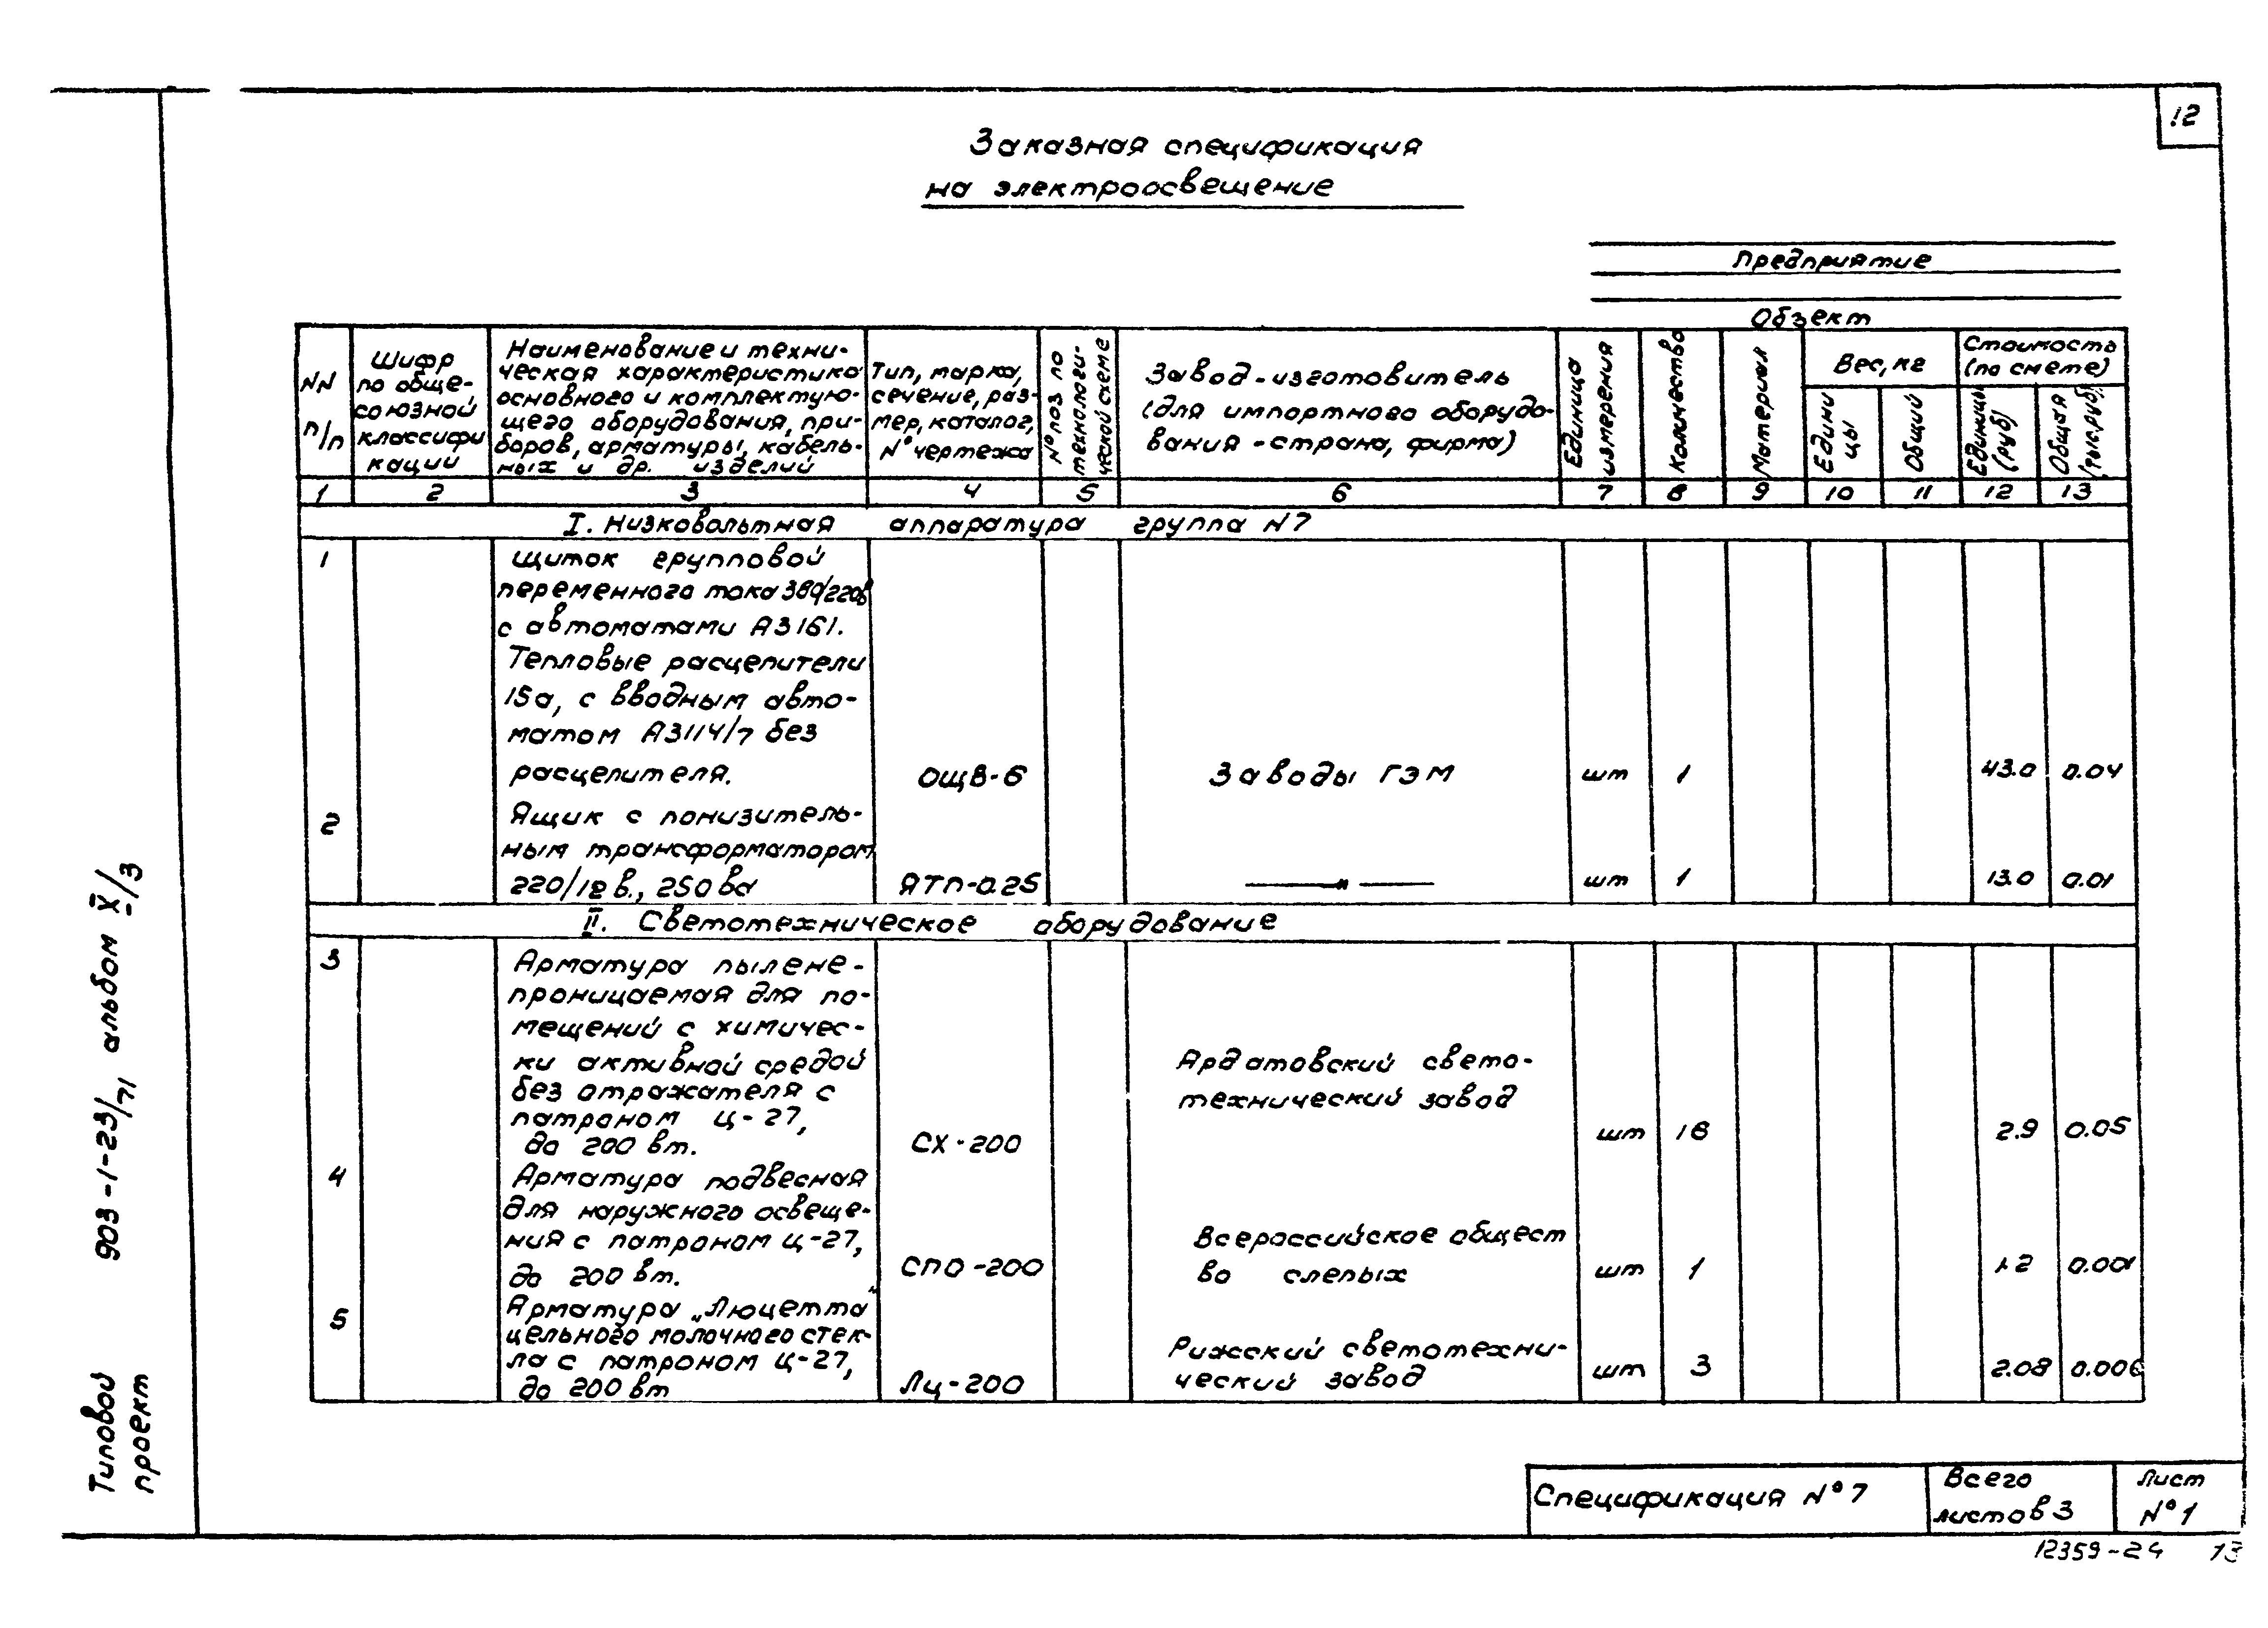 12
Заказная спецификация
на электроосвещение
Предприятие
Объект
NN п/п
Шифр по обще-союзной классифи кации
Наименование и техни-
ческая характеристика
основного и комплектую-
щего оборудования, при-
боров, арматуры, кабель-
ных и др. изделий
Тип, марка,
сечение, раз-
мер, каталог,
N° чертежа
N° поз по
технологи-
ческой схеме
Завод-изготовитель
(для импортного оборудо-
вания - страна, фирма)
Единица
измерения
Количество
Материал
Вес, кг
Едини
цы
Общий
Стоимость
(по смете)
Единицы
(руб)
Общая
(тыс.руб)
1 2 3 4 5 6 7 8 9 10 11 12 13
I. Низковольтная аппаратура группа N7
1 Щиток групповой
переменного тока 380/220в
с автоматами А3161.
Тепловые расцепители
15а, с вводным авто-
матом А3114/7 без
расцепителя. ОЩВ-6 Заводы ГЭМ шт 1 43.0 0.04
2 Ящик с понизитель-
ным трансформатором
220/12 в., 250 ва ЯТП-0.25 —"— шт 1 13.0 0.01
II. Светотехническое оборудование
3 Арматура пылене-
проницаемая для по-
мещений с химичес-
ки активной средой
без отражателя с
патроном Ц-27,
до 200 вт. СХ-200
Ардатовский свето-
технический завод
шт 2.9 0.05
4 Арматура подвесная
для наружного освеще-
ния с патроном Ц-27,
до 200 вт. СПО-200
Всероссийское общест
во слепых
шт 1 1.2 0.001
5 Арматура „Люцетта"
цельного молочного стек-
ла с патроном Ц-27,
до 200 вт Лц-200
Рижский светотехни-
ческий завод
шт 3 2.08 0.006
Типовой
проект
903-1-23/71 альбом X/3
Спецификация N°7
Всего
листов 3
Лист
N°1
12359-24 13